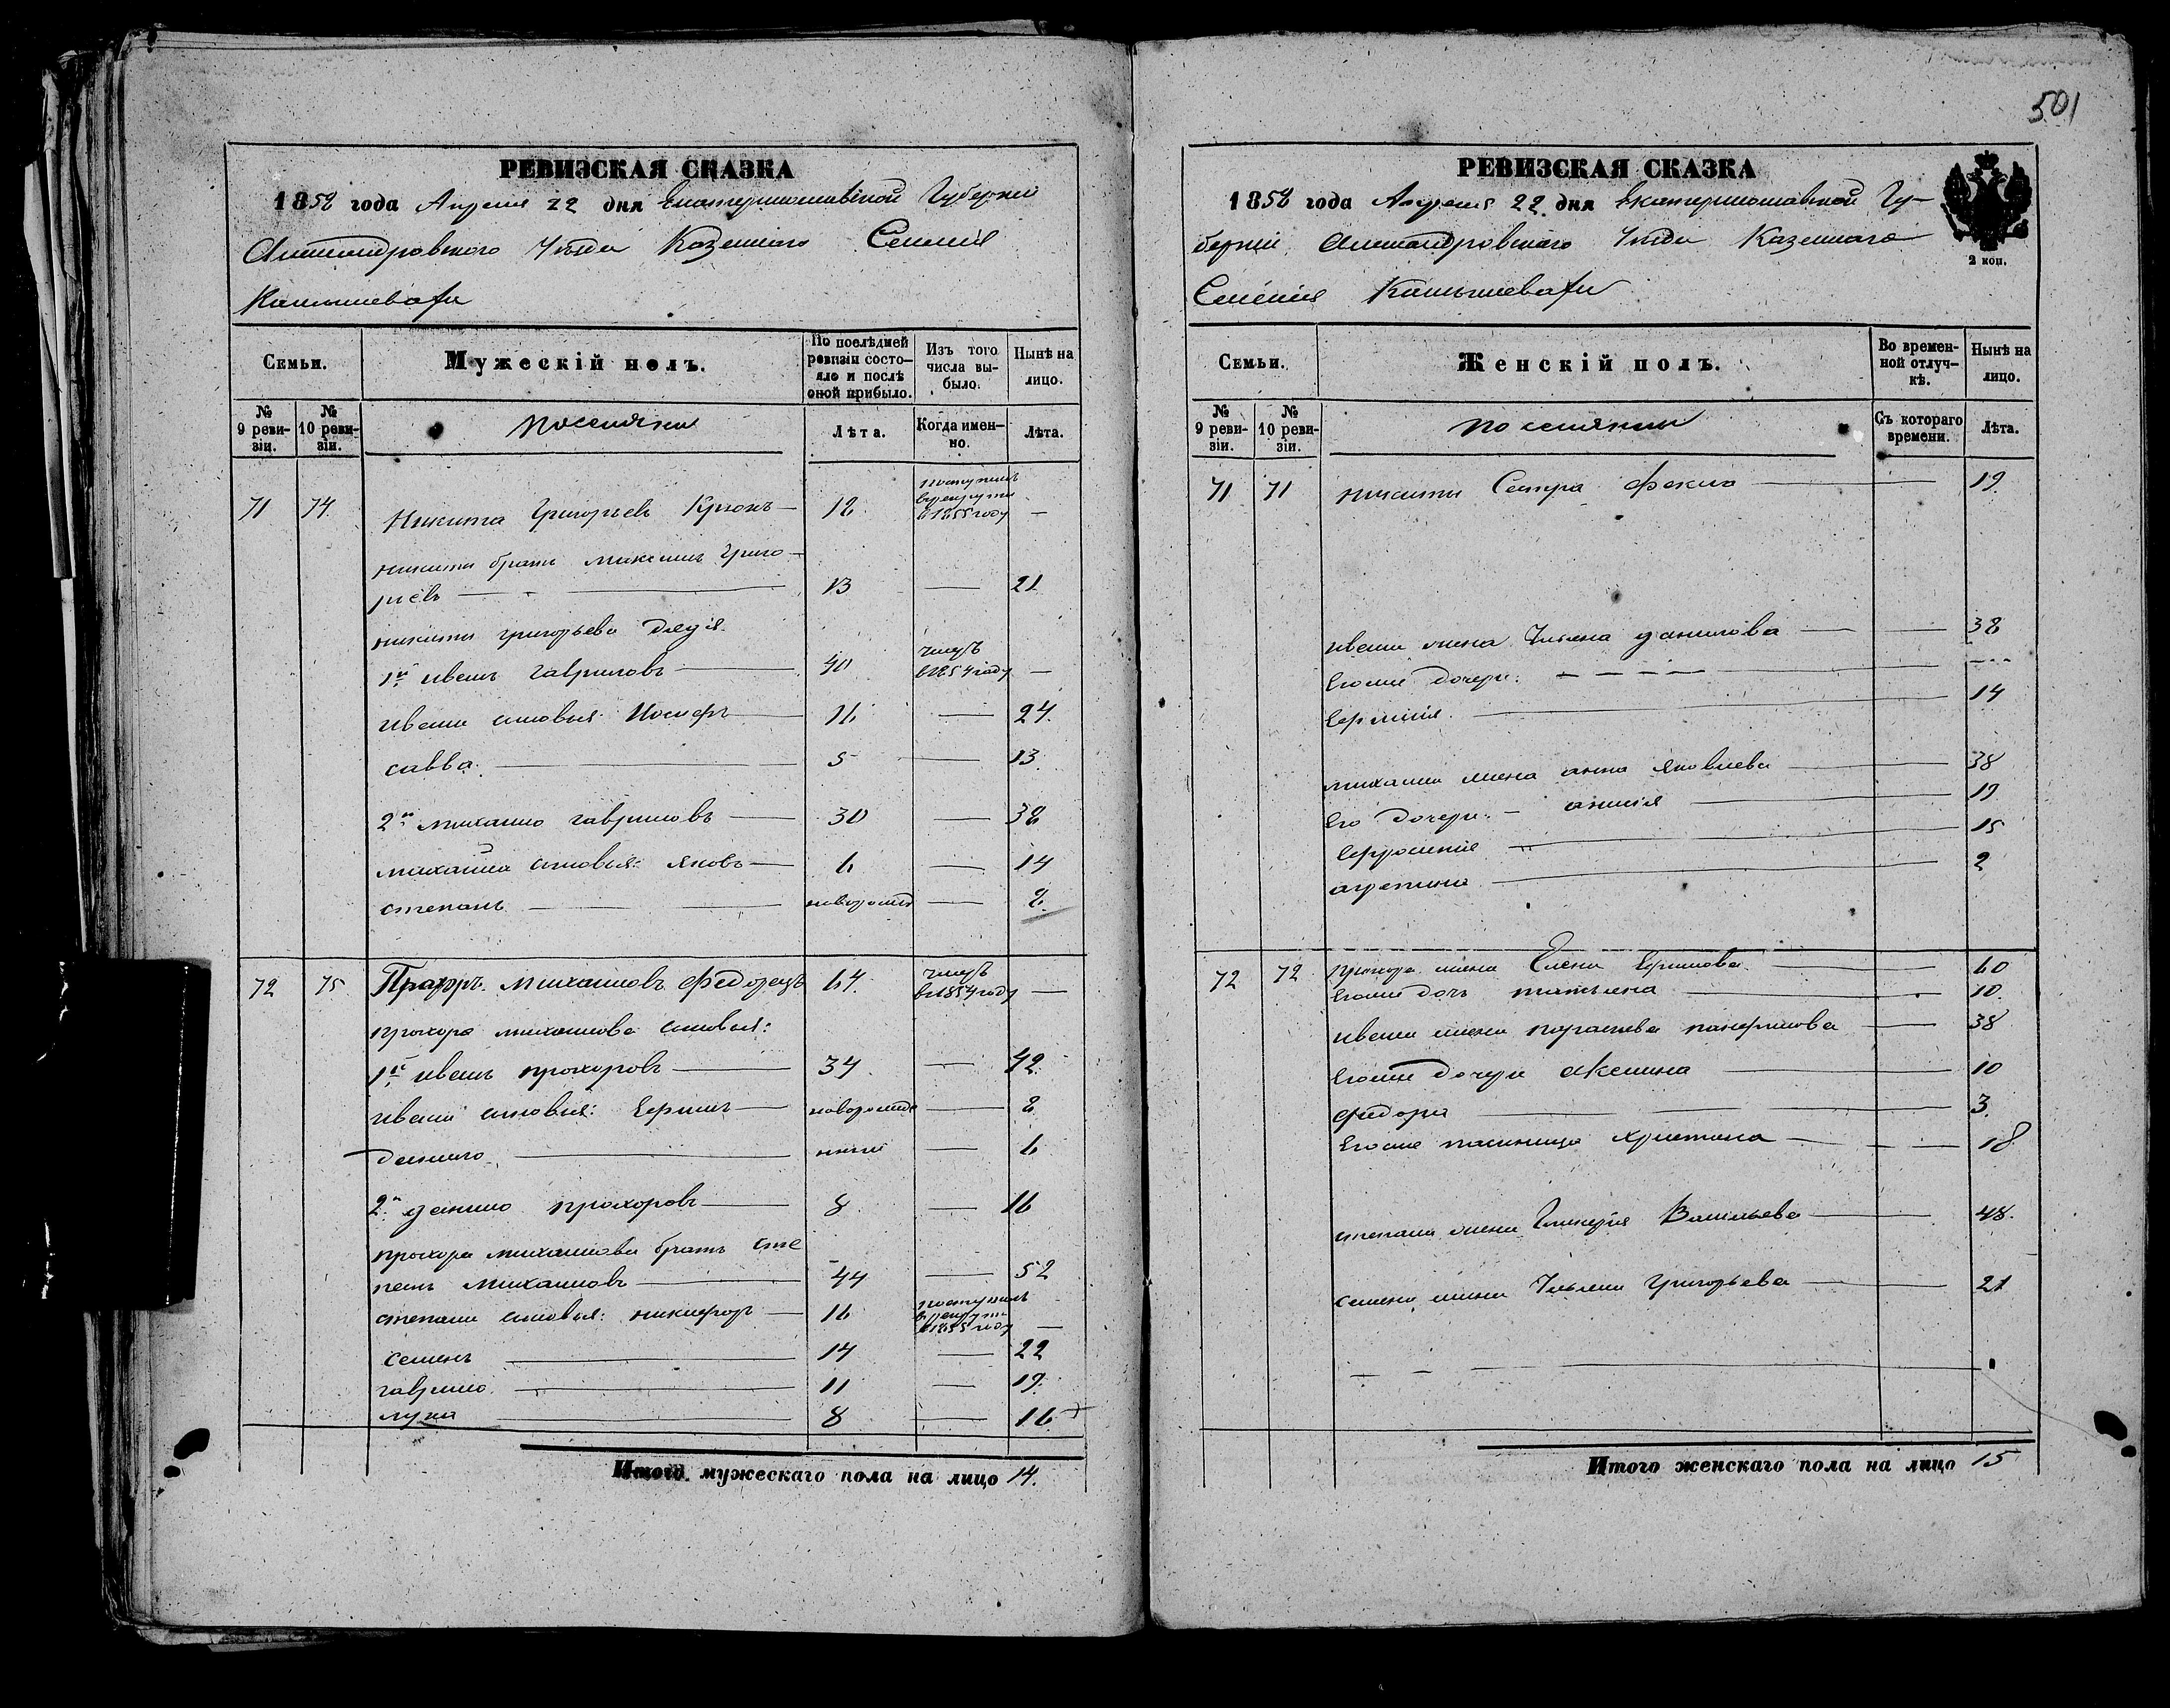 501
РЕВИЗСКАЯ СКАЗКА
1858 года Апреля 22 дня Екатеринославской Губернии
Александровского Уезда Казенного Селения
Камышевахи
Семьи.
Мужескій полъ.
По послѣдней ревизіи состояло и послѣ оной прибыло.
Изъ того числа выбыло.
Нынѣ на лицо.
№ 9 ревизіи.
№ 10 ревизіи.
поселяни
Лѣта.
Когда именно.
Лѣта.
71 74 Никита Григорьевъ 18 поступилъ в рекруты в 1855 году —
никиты братъ Максимъ Григо-
рьевъ — 13 — 21
никиты григорьева дядя
1й иванъ гавриловъ — 40 умеръ в 1854 году —
ивана сыновья: Иосифъ — 16 — 24
савва — 5 — 13
2й михайло гавриловъ — 30 — 38
михайла сыновья: яковъ — 6 — 14
степанъ — новорожд — 8
72 75 Прохоръ Михайловъ Федорецъ 64 умеръ в 1854 году —
прохора михайлова сыновья:
1й иванъ прохоровъ — 34 — 42
ивана сыновья: Ефимъ — новорожде — 8
данило — нные — 6
2й данило прохоровъ — 8 — 16
прохора михайлова братъ сте
панъ михайловъ — 44 — 52
степана сыновья: никифоръ — 16 поступилъ в рекруты в 1855 году —
семенъ — 14 — 22
гаврило — 11 — 19
лука — 8 — 16
Итого мужескаго пола на лицо 14.
РЕВИЗСКАЯ СКАЗКА
1858 года Апреля 22 дня Екатеринославской Гу-
берніи Александровского Уезда Казенного
Селенія Камышевахи
2 коп.
Семьи.
Женскій полъ.
Во временной отлучкѣ.
Нынѣ на лицо.
№ 9 ревизіи.
№ 10 ревизіи.
поселянки
Съ котораго времени.
Лѣта.
71 71 никиты Сестра Фекла — 19
ивана жена Ульяна данилова — 38
Егоже дочери: — — — —
— 14
михайла жена анна яковлева — 38
Его дочери: — анисія — 19
Ефросинія — 15
агрепина — 2
72 72 прохора жена Елена Ефимова — 60
Егоже дочь татьяна — 10
ивана жена параскева панфилова — 38
Егоже дочери Аксинья — 10
федора — 3
Егоже пасынница христина — 18
степана жена Гликерія Васильева — 48
семена жена Ульяна Григорьева — 21
Итого женскаго пола на лицо 15